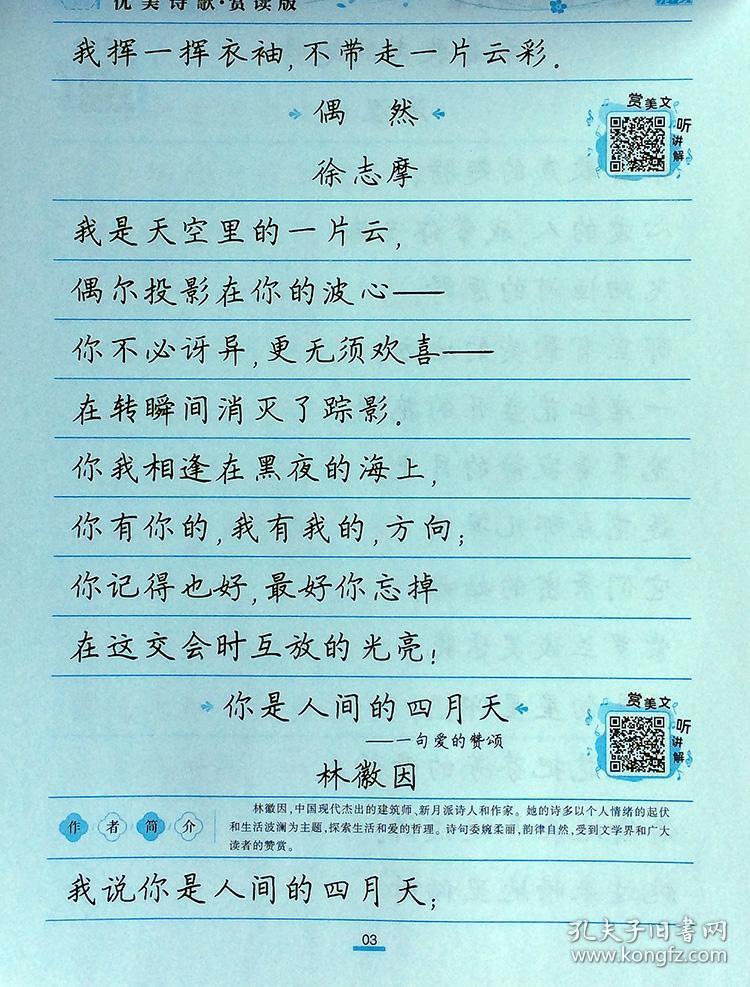 优美诗歌·赏读版
我挥一挥衣袖,不带走一片云彩.
偶然
赏美文
听讲解
徐志摩
我是天空里的一片云,
偶尔投影在你的波心——
你不必讶异,更无须欢喜——
在转瞬间消灭了踪影.
你我相逢在黑夜的海上,
你有你的,我有我的,方向;
你记得也好,最好你忘掉
在这交会时互放的光亮!
你是人间的四月天
——一句爱的赞颂
赏美文
听讲解
林徽因
作者简介
林徽因,中国现代杰出的建筑师、新月派诗人和作家。她的诗多以个人情绪的起伏
和生活波澜为主题,探索生活和爱的哲理。诗句委婉柔丽,韵律自然,受到文学界和广大
读者的赞赏。
我说你是人间的四月天;
03
孔夫子旧书网
www.kongfz.com